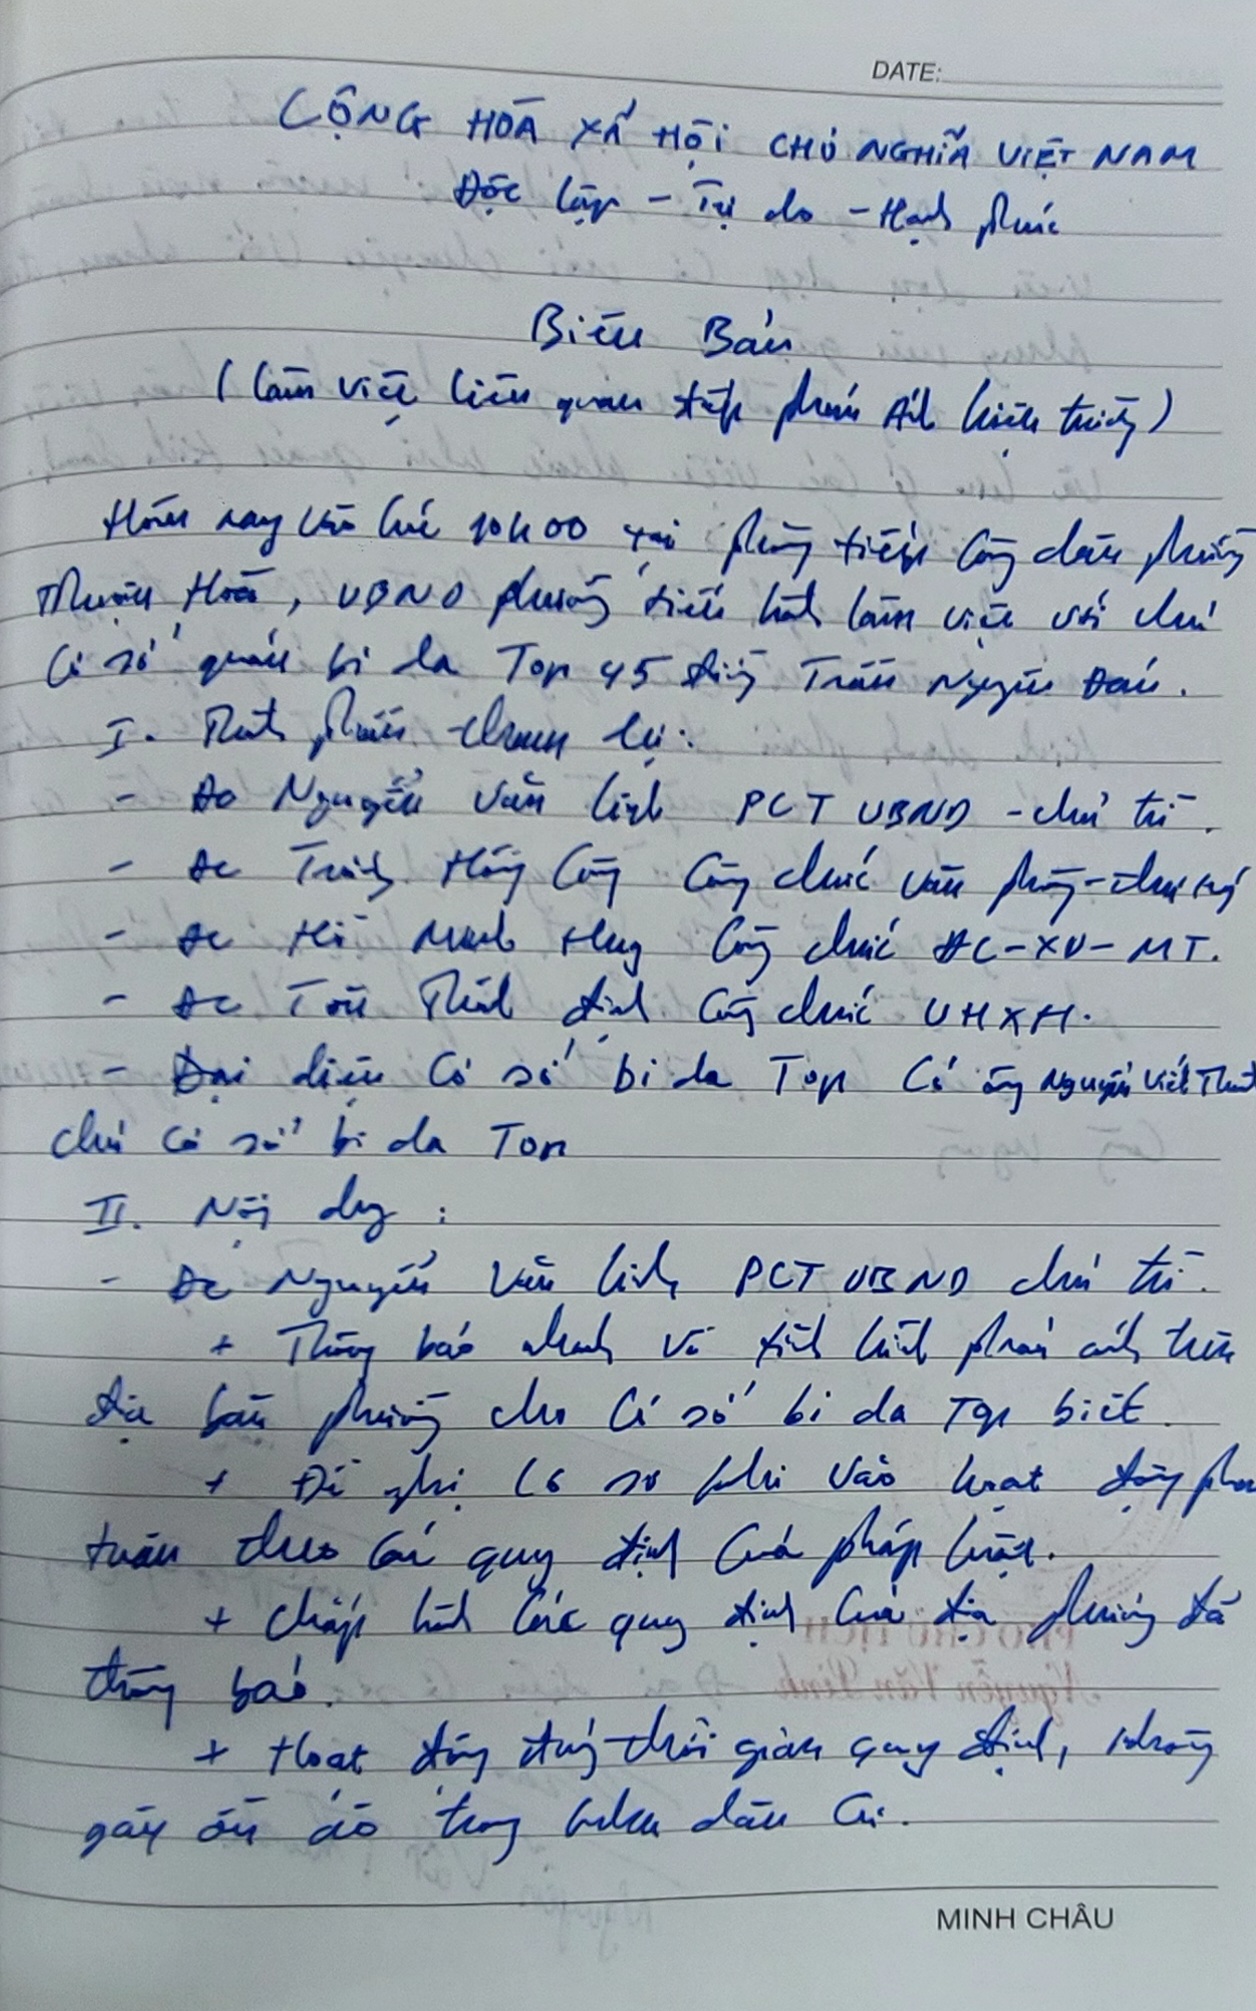 DATE:
CỘNG HÒA XÃ HỘI CHỦ NGHĨA VIỆT NAM
Độc lập - Tự do - Hạnh phúc
Biên Bản
(Làm việc liên quan đến phản ánh hiện trường)
Hôm nay vào lúc 10h00 tại phòng tiếp công dân phường
Thuận Hoá, UBND phường tiến hành làm việc với chủ
cơ sở quán bi da Top 45 đường Trần Nguyên Đán.
I. Thành phần tham dự:
- Đc Nguyễn Văn Linh PCT UBND - chủ trì.
- Đc Hồng Công công chức văn phòng - thư ký
- Đc Hồ Minh Huy công chức ĐC-XD-MT.
- Đc Tôn Thất Định công chức VHXH.
- Đại diện cơ sở bi da Top có ông Nguyễn Viết
chủ cơ sở bi da Top
II. Nội dung:
- Đc Nguyễn Văn Linh PCT UBND chủ trì.
+ Thông báo nhanh về tình hình phản ánh trên
địa bàn phường cho cơ sở bi da Top biết.
+ Đề nghị cơ sở khi vào hoạt động phải
tuân theo các quy định của pháp luật.
+ Chấp hành các quy định của địa phương đã
thông báo.
+ Hoạt động đúng thời gian quy định, không
gây ồn ào trong khu dân cư.
PHÓ CHỦ TỊCH
Nguyễn Văn Linh
MINH CHÂU